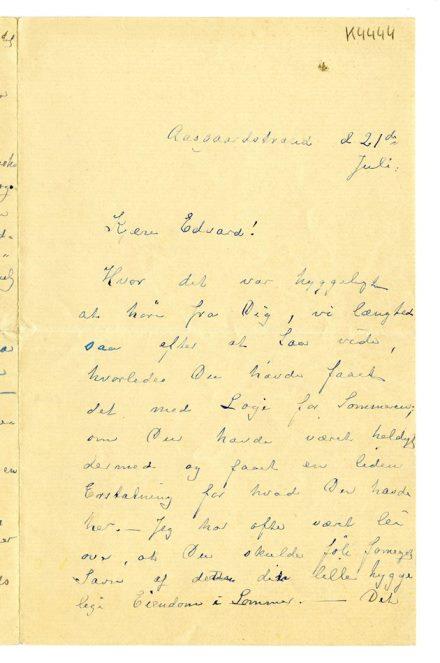 K4444
Aasgaardstrand d 21de
Juli.
Kjere Edvard!
Hvor det var hyggeligt
at höre fra Dig, vi længted
saa efter at faa vide,
hvorledes Du havde faaet
det med Logi for Sommeren,
om Du havde været heldig
dermed og faaet en liden
Erstatning for hvad Du havde
her. — Jeg har ofte vært lei
over, at Du skulde föle saameget
Savn af denne din lille hygge
lige Eiendom i Sommer. — Det